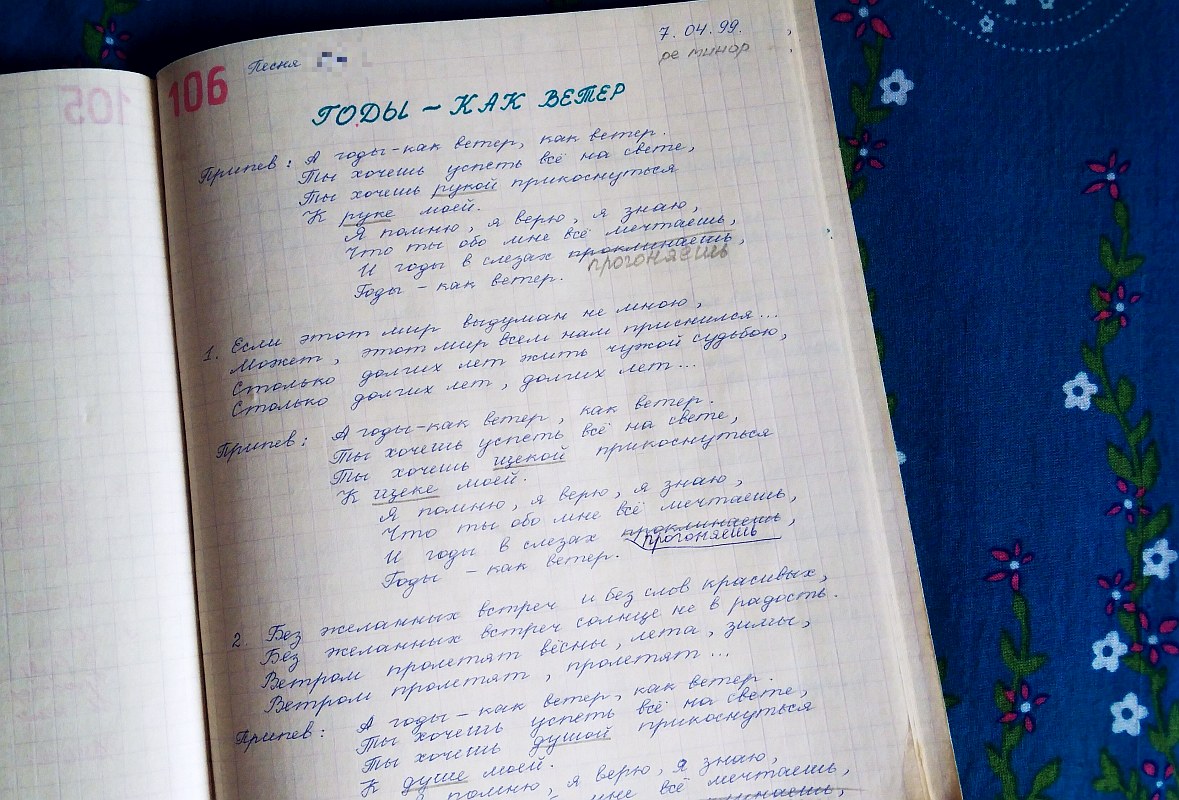 105
106
Песня
7.04.99.
ре минор
ГОДЫ – КАК ВЕТЕР
Припев: А годы-как ветер, как ветер.
Ты хочешь успеть всё на свете,
Ты хочешь рукой прикоснуться
К руке моей.
Я помню, я верю, я знаю,
Что ты обо мне всё мечтаешь,
И годы в слезах проклинаешь,
прогоняешь
Годы – как ветер.
1. Если этот мир выдуман не мною,
Может, этот мир всем нам приснился...
Столько долгих лет жить чужой судьбою,
Столько долгих лет, долгих лет...
Припев: А годы-как ветер, как ветер.
Ты хочешь успеть всё на свете,
Ты хочешь щекой прикоснуться
К щеке моей.
Я помню, я верю, я знаю,
Что ты обо мне всё мечтаешь,
И годы в слезах проклинаешь,
прогоняешь
Годы – как ветер.
2. Без желанных встреч и без слов красивых,
Без желанных встреч солнце не в радость.
Ветром пролетят вёсны, лета, зимы,
Ветром пролетят, пролетят...
Припев: А годы – как ветер, как ветер.
Ты хочешь успеть всё на свете,
Ты хочешь душой прикоснуться
К душе моей.
Я помню, я верю, я знаю,
мне всё мечтаешь,